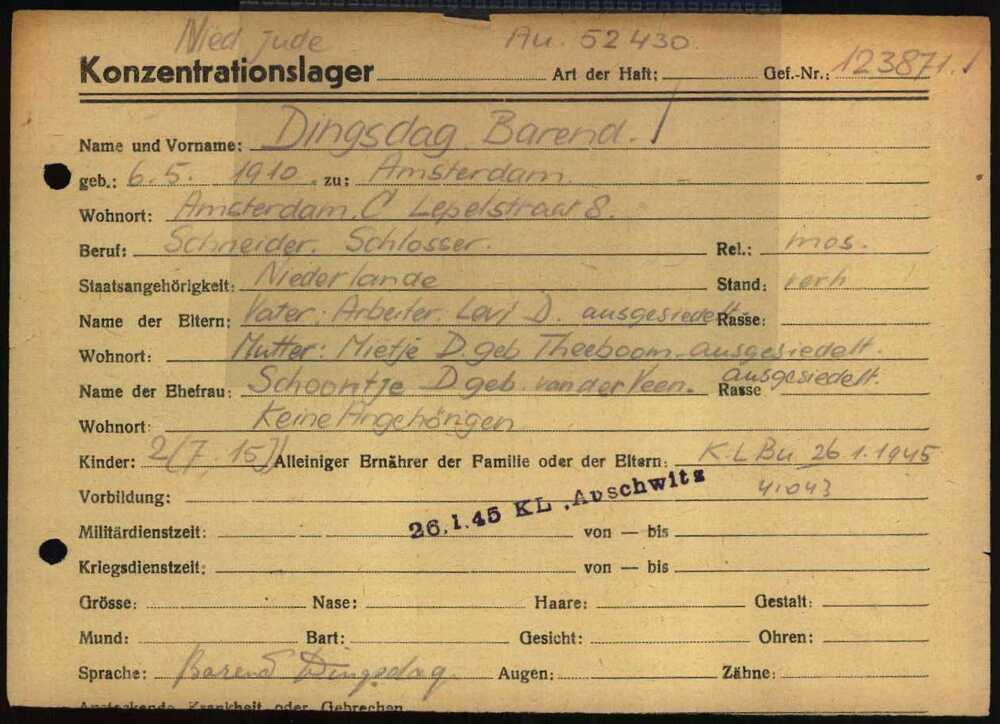 Nied. Jude Au. 52430.
Konzentrationslager Art der Haft: Gef.-Nr.: 123871.
Name und Vorname: Dingsdag Barend.
geb.: 6.5. 1910. zu: Amsterdam.
Wohnort: Amsterdam, C Lepelstraat 8.
Beruf: Schneider. Schlosser. Rel.: mos.
Staatsangehörigkeit: Niederlande Stand: verh
Name der Eltern: Vater: Arbeiter. Levi D. ausgesiedelt Rasse:
Wohnort: Mutter: Mietje D. geb Theeboom. ausgesiedelt.
Name der Ehefrau: Schoontje D geb. van der Veen. Rasse ausgesiedelt.
Wohnort: Keine Angehörigen
Kinder: 2 (7, 15J) Alleiniger Ernährer der Familie oder der Eltern: K.L Bu 26.1.1945
Vorbildung: 41043
26.1.45 KL. Auschwitz
Militärdienstzeit: von — bis
Kriegsdienstzeit: von — bis
Grösse: Nase: Haare: Gestalt:
Mund: Bart: Gesicht: Ohren:
Sprache: Barend Dingsdag. Augen: Zähne:
Ansteckende Krankheit oder Gebrechen